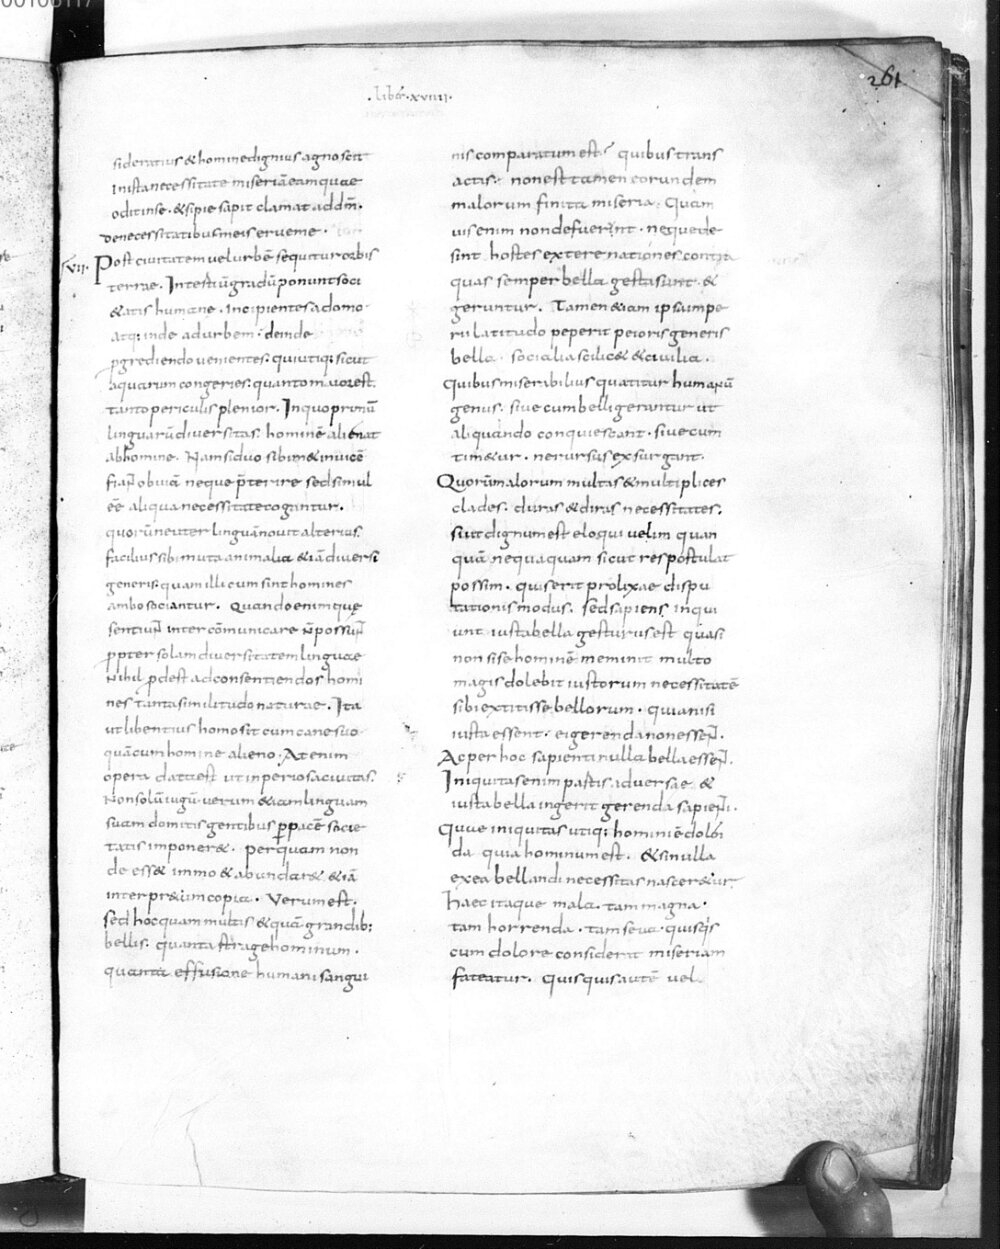 261
.liber.xviiii.
sideratius & homine dignius agnoscit
In ista necessitate miseriã eam quae
odit in se. & si pie sapit clamat ad dm̄.
De necessitatibus meis erue me.
.vii. Post ciuitatem uel urbẽ sequitur orbis
terrae. In q̃ tertiũ gradũ ponunt soci
& atis humane. incipientes a domo
atq; inde ad urbem. deinde
p̱grediendo uenientes. qui utiq; sicut
aquarum congeries. quanto maior est.
tanto periculis plenior. In quo primũ
linguarũ diuersitas. hominẽ alienat
ab homine. Nam si duo sibim& inuicẽ
fiant obuiã neque p̄terire sed simul
eẽ aliqua necessitate cogantur.
quorũ neuter linguã nouit alterius.
facilius sibi muta animalia &iã diuersi
generis quam illi cum sint homines
ambo sociantur. Quando enim quę
sentiunt inter cõmunicare ñ possunt
p̱pter solam diuersitatem linguae
Nihil p̱dest ad consentiendos homi
nes tanta similitudo naturae. Ita
ut libentius homo sit cum cane suo
quã cum homine alieno. At enim
opera data est ut inperiosa ciuitas.
Non solũ iugũ uerum &iam linguam
suam domitis gentibus p̱ pacẽ socie
tatis imponer&. per quam non
de ess& immo & abundar& &iã
interpr&um copia. Verum est.
sed hoc quam multis & quã grandib;
bellis. quanta strage hominum.
quanta effusione humani sangui
nis comparatum est? quibus trans
actis. non est tamen eorundem
malorum finita miseria. Quam
uis enim non defuerint. neque de
sint hostes extere nationes. contra
quas semper bella gesta sunt. &
geruntur. Tamen &iam ipsa impe
rii latitudo peperit peioris generis
bella. socialia scilic& & ciuilia.
Quibus miserabilius quatitur humanũ
genus. siue cum belligerantur ut
aliquando conquiescant. siue cum
tim&ur. ne rursus exsurgant.
Quorũ malorum multas & multiplices
clades. duras & diras necessitates.
si ut dignum est eloqui uelim quan
quã nequaquam sicut res postulat
possim. quis erit prolixae dispu
tationis modus. sed sapiens inqui
unt iusta bella gesturus est quasi
non si se hominẽ meminit multo
magis dolebit iustorum necessitatẽ
sibi extitisse bellorum. quia nisi
iusta essent. ei gerenda non essent.
Ac per hoc sapienti nulla bella essent.
Iniquitas enim partis aduersae &
iusta bella ingerit gerenda sapienti.
Quae iniquitas utiq; homini ẽ dolẽ
da quia hominum est. & si nulla
ex ea bellandi necessitas nascer&ur.
Haec itaque mala. tam magna.
tam horrenda. tam seua. quisq̃s
cum dolore considerat miseriam
fateatur. Quisquis autẽ uel